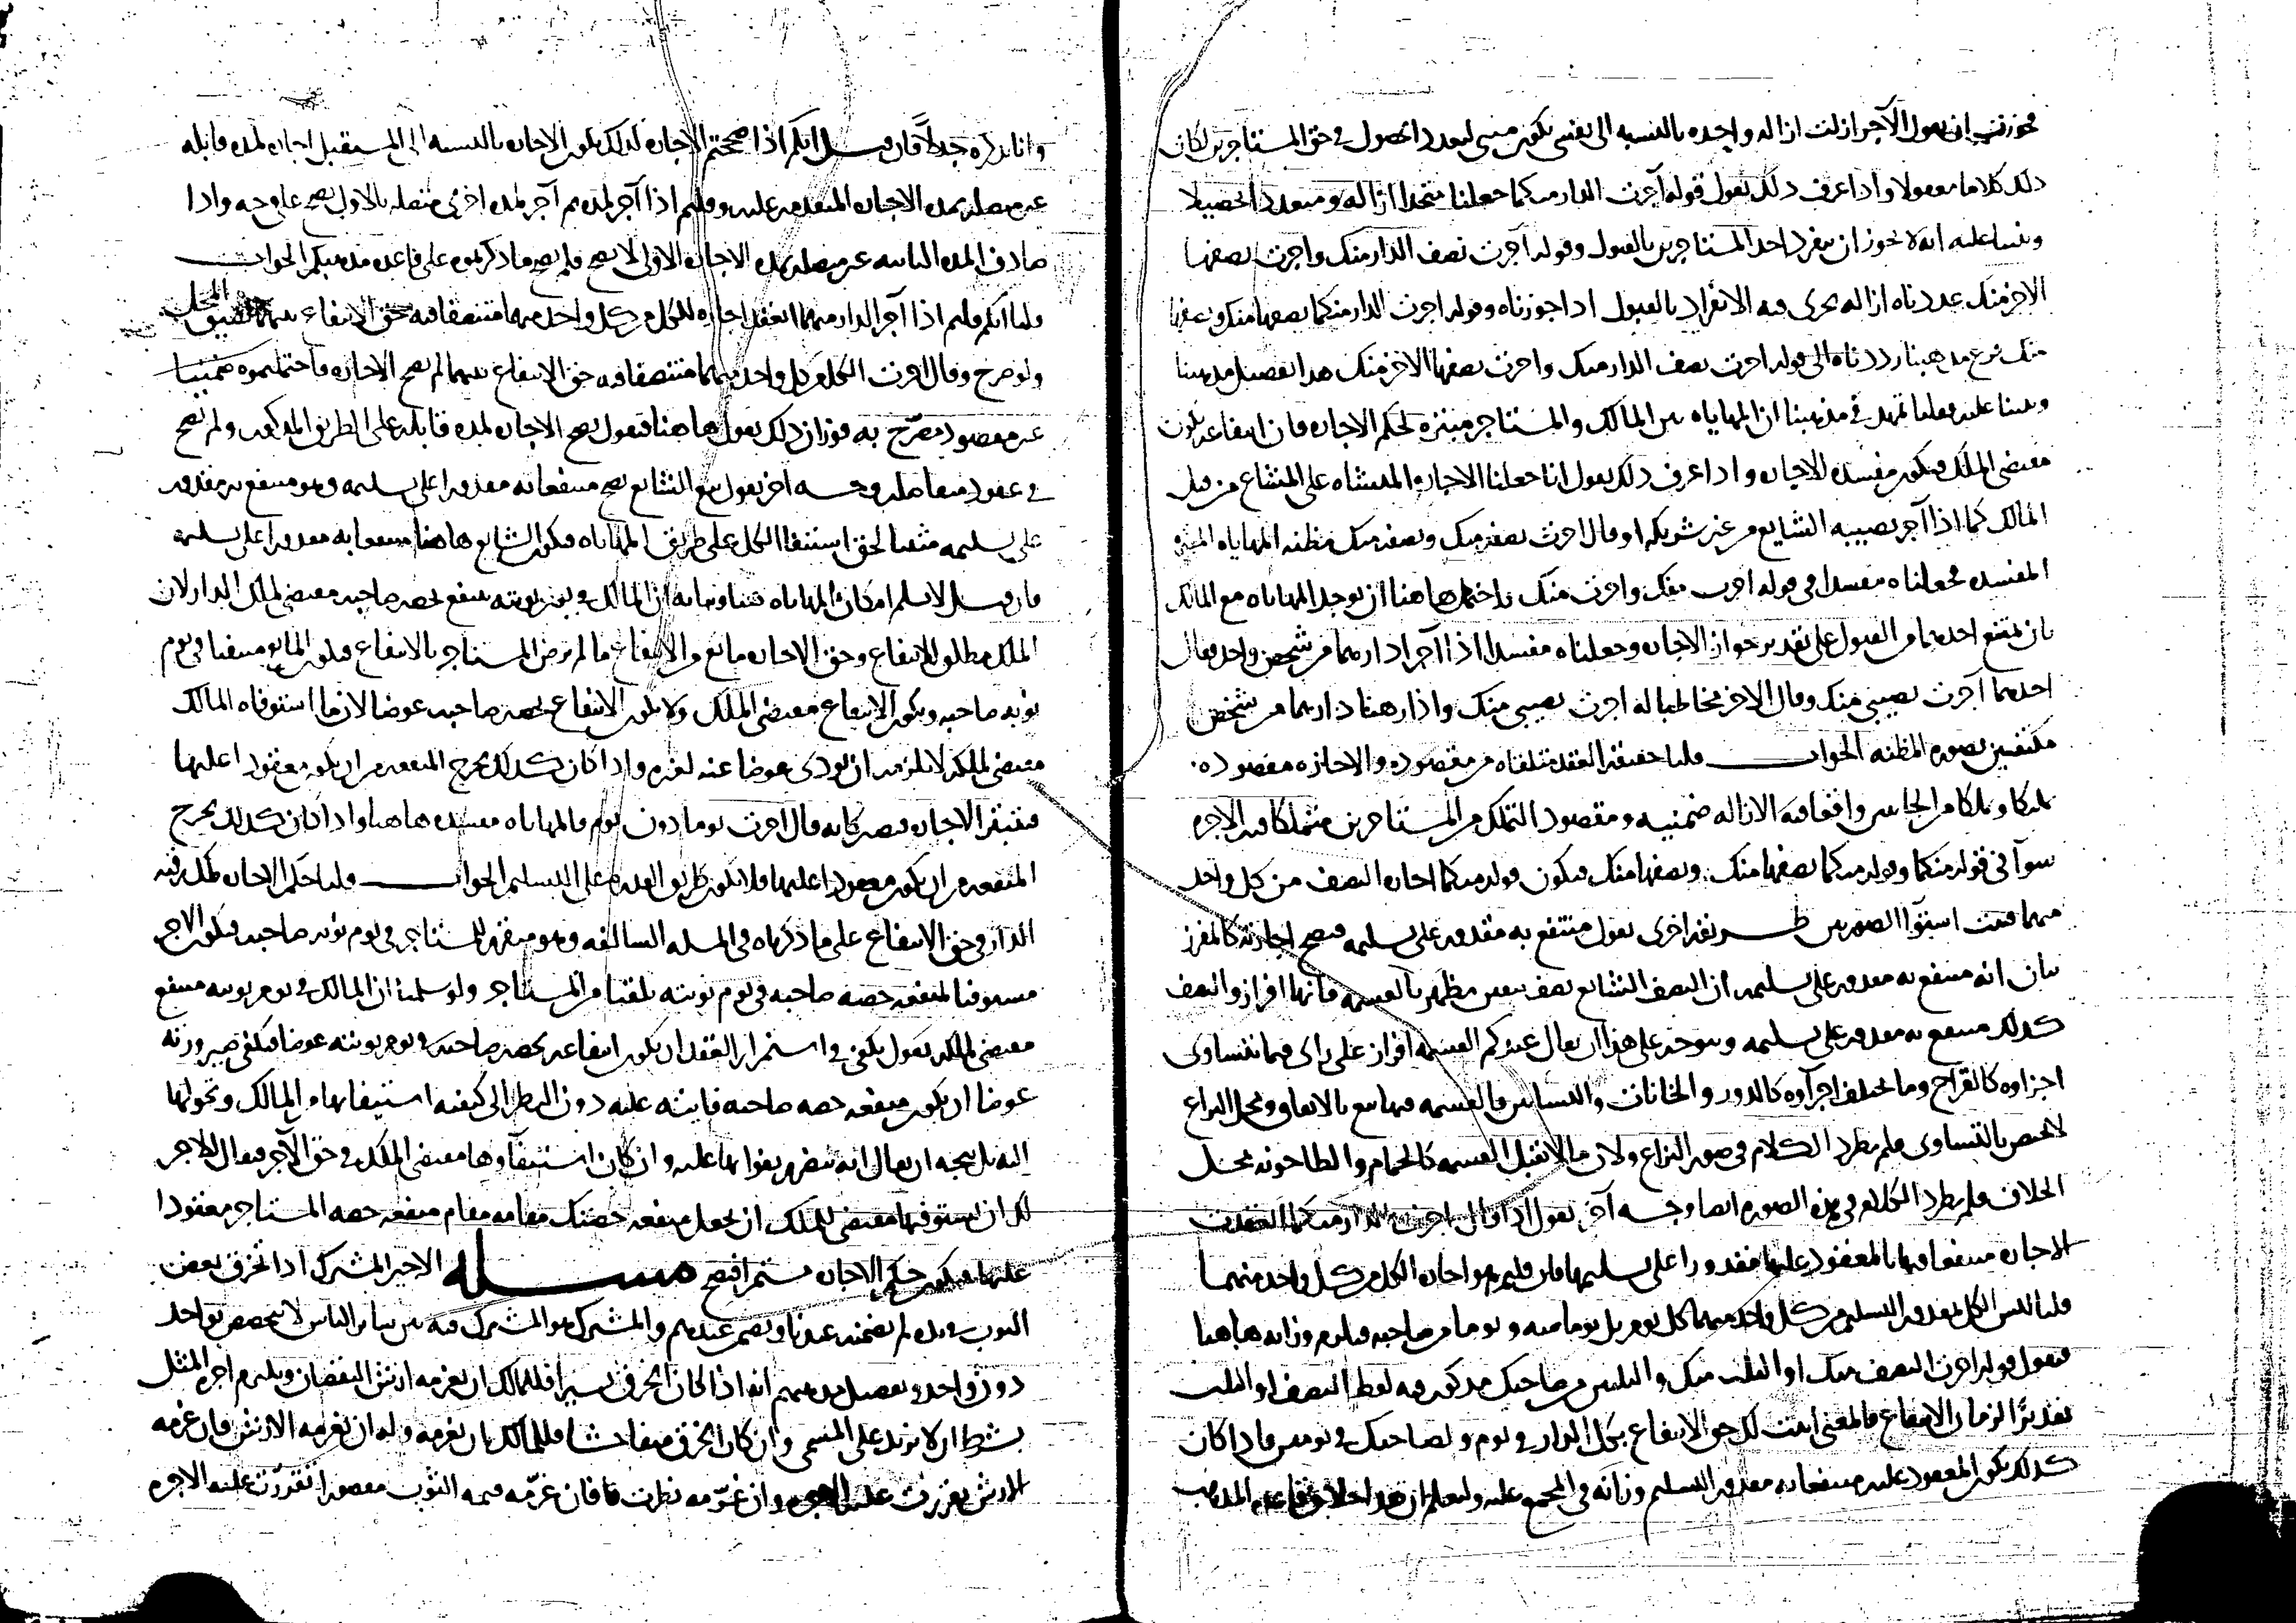 فجوزت ان يقول الآجر ازلت ازالة واحدة بالنسبة الى نفسي يكون مبني لتعدد الحصول في حق المستاجرين لكان
ذلك كلاما معقولا واذا عرف ذلك نقول قوله آجرت الدار منكما جعلنا متحدا ازالة ومتعددا تحصيلا
وبنينا عليه انه لا يجوز ان ينفرد احد المستاجرين بالقبول وقوله آجرت نصف الدار منك واجرت نصفها
الاخر منك عددناه ازالة يجرى فيه الانفراد بالقبول اذا جوزناه وقوله اجرت الدار منكما نصفها منك ونصفها
منك نوع مذهبنا رددناه الى قوله اجرت نصف الدار منك واجرت نصفها الاخر منك هذا تفصيل مذهبنا
وبنينا عليه تمهد في مذهبنا ان المهاياه بين المالك والمستاجر لحكم الاجارة فان انتفاعه يكون
مقتضى الملك فيكون مفسدة للاجارة واذا عرف ذلك نقول انا جعلنا الاجارة على المشاع من قبل
المالك كما اذا آجر نصيبه الشايع من غير شريكه او قال اجرت نصفه منك ونصفه منك مظنة المهاياه
المفسدة فجعلناه مفسدا في قوله اجرت منك واجرت منك هاهنا ان توجد المهاياه مع المالك
بان يمتنع احدهما من القبول على تقدير جواز الاجارة وجعلناه مفسدا اذا آجرا دارهما من شخص واحد فقال
احدهما آجرت نصيبي منك وقال الاخر مخاطبا له اجرت نصيبي منك واذا رهنا دارهما من شخص
مكتفين بصورة المظنة الجواب قلنا حقيقة العقد متلقاه من مقصوده والاجارة مقصوده
تمليكا وتملكا من الجانبين واقعا فيه الازالة ضمنية ومقصود التملك من المستاجرين متملكا فيه الاجرة
سوآ في قوله منكما وقوله منكما نصفها منك ونصفها منك فيكون قوله منكما اجارة النصف من كل واحد
منهما فثبت استوآ الصورتين طريقه اخرى نقول منتفع به مقدور على تسليمه فصح اجارته كالمفرز
بيان انه منتفع به مقدور على تسليمه ان النصف الشايع نصف بتعين يظهر بالقسمة فانها افراز والنصف
كذلك منتفع به مقدور على تسليمه ويتوجه على هذا ان يقال عندكم القسمة افراز على راى فيما تتساوى
اجزاوه كالقراح وما يختلف اجزآوه كالدور والخانات والبساتين فالقسمة فيها بيع بالاتفاق ومحل النزاع
لا يختص بالتساوى فلم يطرد الكلام في صور النزاع ولان ما لا يقبل القسمة كالحمام والطاحونة محل
الخلاف فلم يطرد الكلام في هذه الصورة ايضا وجه آخر نقول اذا قال اجرت الدار منكما انعقدت
الاجارة منتفعا فيها بالمعقود عليها مقدورا على تسليمها فان قلتم هو اجارة الكل من كل واحد منهما
قلنا اليس الكل مقدور التسليم من كل واحد منهما كل يوم بل يوما منه ويوما من صاحبه فيلزم وزانه هاهنا
فيقول قوله اجرت النصف منك او الثلث منك والثلثين من صاحبك مذكور فيه لفظ النصف او الثلث
تقديرا لزمان الانتفاع فالمعنى اثبت لك حق الانتفاع بكل الدار في يوم ولصاحبك في يومين فاذا كان
كذلك يكون المعقود عليه منتفعا به مقدور التسليم وزانه في المجمع عليه وليعلم ان هذا قاعدة المذهب
وانا نذكره جدلا فان قيل انكم اذا صححتم الاجارة كذلك يكون الاجارة بالنسبة الى المستقبل اجارة لمدة قابلة
غير متصلة بمدة الاجارة المتقدمة عليه وقلتم اذا آجر لمدة ثم آجر لمدة اخرى متصلة بالاولى يصح على وجه واذا
صادف المدة الثانية غير متصلة بمدة الاجارة الاولى لا يصح فلم يصح ما ذكرتموه على قاعدة مذهبكم الجواب
قلنا انكم قلتم اذا آجر الدار منهما انعقد اجارة للكل من كل واحد منهما متنصفا فيه حق الانتفاع بينهما لضيق المحل
ولو صرح وقال اجرت الكل من كل واحد منهما متنصفا فيه حق الانتفاع بينهما لم يصح الاجارة فاحتملتموه ضمنيا
غير مقصود مصرح به فوزان ذلك نقول هاهنا فنقول يصح الاجارة لمدة قابلة على الطريق المذكور ولم يصح
في عقود متفاصلة وجه آخر نقول بيع الشايع يصح منتفعا به مقدورا على تسليمه وهو منتفع به مقدور
على تسليمه مثبتا لحق استيفا الكل على طريق المهاياه فيكون الشايع هاهنا منتفعا به مقدورا على تسليمه
فان قيل لا نسلم امكان المهاياه هنا وبيانه ان المالك في يوم نوبته ينتفع بحصة صاحبه مقتضى لملك الدار لان
الملك مطلق للانتفاع وحق الاجارة مانع من الانتفاع ما لم يرض المستاجر بالانتفاع فيكون المانع منتفيا في يوم
نوبة صاحبه ويكون الانتفاع مقتضى الملك ولا يكون الانتفاع بحصة صاحبه عوضا لان ما استوفاه المالك
مقتضى لملكه لا يلزمه ان يودى عوضا عنه لغيره واذا كان كذلك يخرج المنفعة من ان يكون معقودا عليها
فتبقى الاجارة فيصير كانه قال اجرت يوما دون يوم فالمهاياه مفسدة هاهنا واذا كان كذلك يخرج
المنفعة من ان يكون معقودا عليها فلا يكون طريق القدرة على التسليم الجواب قلنا حكم الاجارة ملك رقبة
الدار في حق الانتفاع على ما ذكرناه في المسله السالفه وهو مبقى للمستاجر في يوم نوبة صاحبه فيكون الاجر
مستوفيا لمنفعة حصة صاحبه في يوم نوبته تلقيا من المستاجر ولو سلمنا ان المالك في يوم نوبته منتفع
مقتضى لملكه نقول يكفى في استمرار العقد ان يكون انتفاعه بحصة صاحبه في يوم نوبته عوضا فيكفى صيرورته
عوضا ان يكون منفعة حصة صاحبه فايتة عليه دون النظر الى كيفية استيفايها من المالك وتحولها
اليه بل يتجه ان يقال انه يتضرر بفواتها عليه وان كان استيفآوها مقتضى الملك في حق الآجر فيقال للآجر
لك ان تستوفيها مقتضى للملك ان تجعل منفعة حصتك مقامه مقام منفعة حصة المستاجر معقودا
عليها فيكون حكم الاجارة مستمرا فتصح مسله الاجير المشترك اذا تخرق بعض
الثوب في يده لم يضمنه عندنا ويضمن عندهم والمشترك هو المشترك فيه بين ساير الناس لا يتخصص بواحد
دون واحد وتفصيل مذهبهم انه اذا كان الخرق يسيرا فللمالك ان يغرمه ارش النقصان ويلزم اجر المثل
بشرط ان لا يزيد على المسمى وان كان الخرق متفاحشا فللمالك ان يغرمه وله ان يغرمه الارش فان غرمه
الارش تقررت عليه الاجرة وان غرمه نظرت فان غرمه قيمة الثوب مقصورا تقررت عليه الاجرة